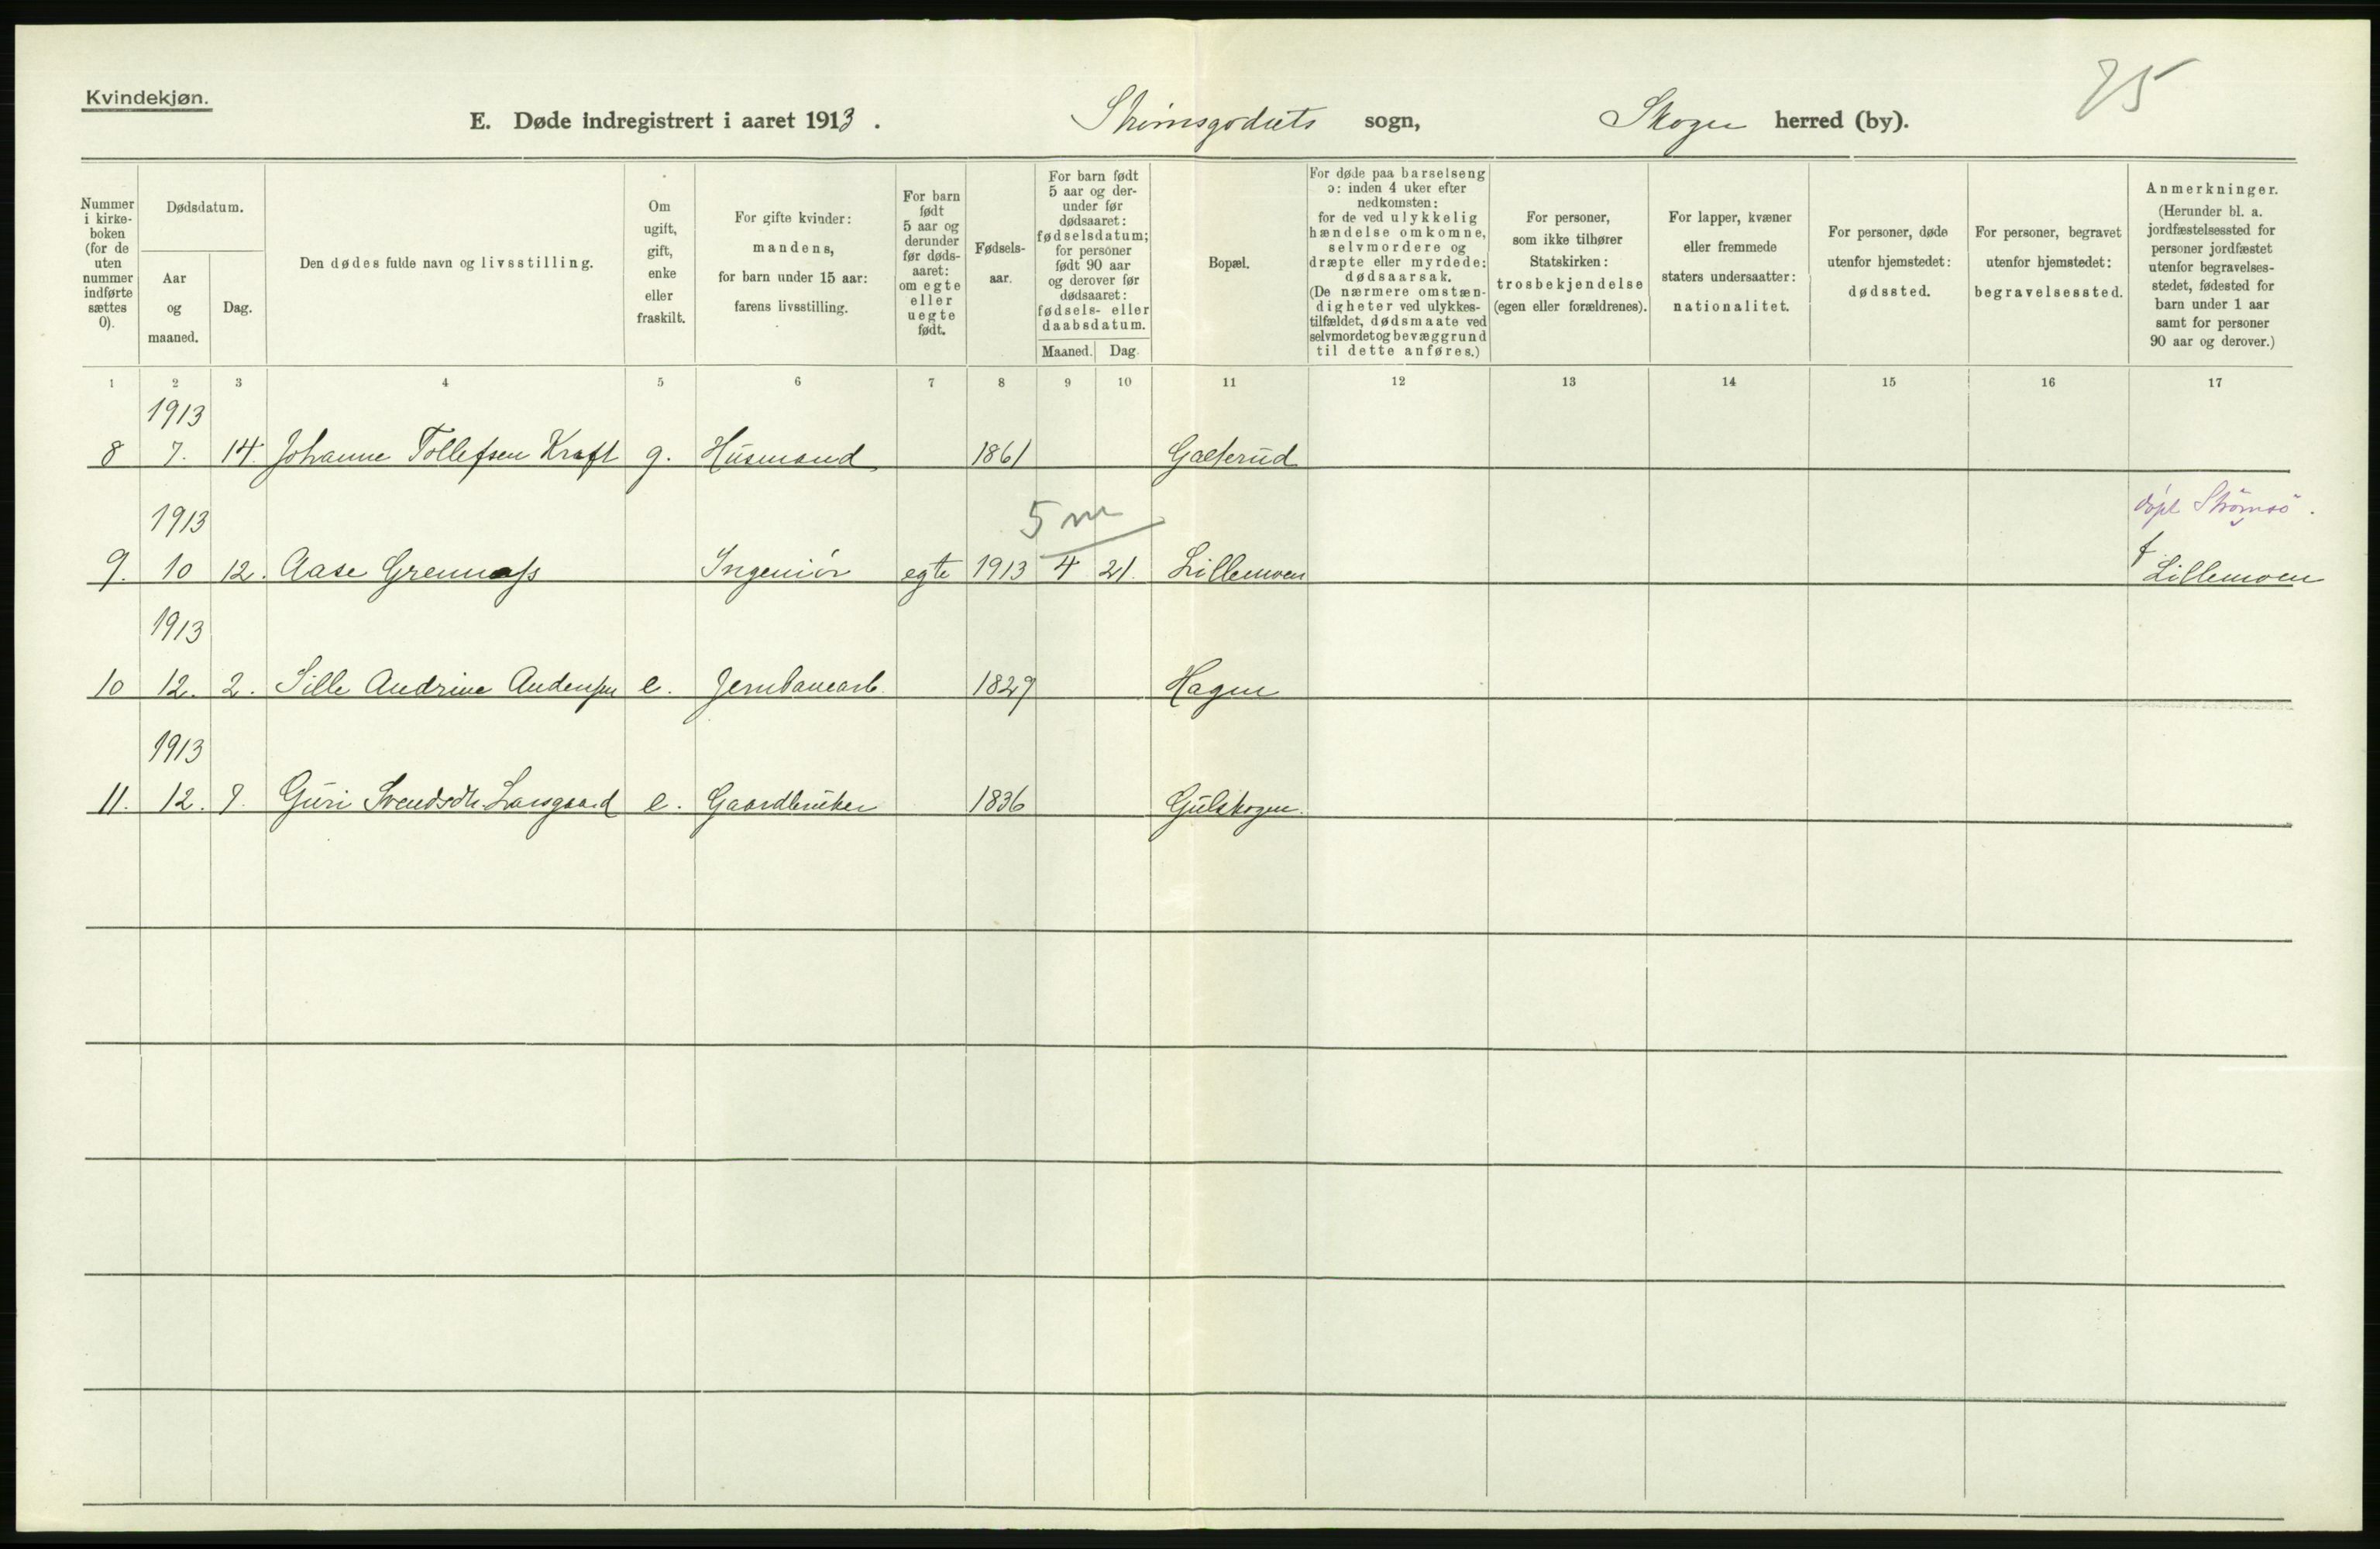 Kvindekjøn.
75
E. Døde indregistrert i aaret 1913. Strømsgodsets sogn, Skoger herred (by).
Nummer i kirke-boken (for de uten nummer indførte sættes 0).
Dødsdatum.
Aar og maaned.
Dag.
Den dødes fulde navn og livsstilling.
Om ugift, gift, enke eller fraskilt.
For gifte kvinder: mandens, for barn under 15 aar: farens livsstilling.
For barn født 5 aar og derunder før døds-aaret: om egte eller uegte født.
Fødsels-aar.
For barn født 5 aar og der-under før dødsaaret: fødselsdatum; for personer født 90 aar og derover før dødsaaret: fødsels- eller daabsdatum.
Maaned. Dag.
Bopæl.
For døde paa barselseng ɔ: inden 4 uker efter nedkomsten: for de ved ulykkelig hændelse omkomne, selvmordere og dræpte eller myrdede: dødsaarsak. (De nærmere omstæn-digheter ved ulykkes-tilfældet, dødsmaate ved selvmordet og bevæggrund til dette anføres.)
For personer, som ikke tilhører Statskirken: trosbekjendelse (egen eller forældrenes).
For lapper, kvæner eller fremmede staters undersaatter: nationalitet.
For personer, døde utenfor hjemstedet: dødssted.
For personer, begravet utenfor hjemstedet: begravelsessted.
Anmerkninger. (Herunder bl. a. jordfæstelsessted for personer jordfæstet utenfor begravelses-stedet, fødested for barn under 1 aar samt for personer 90 aar og derover.)
1 2 3 4 5 6 7 8 9 10 11 12 13 14 15 16 17
1913
8 7. 14. Johanne Tollefsen Kraft g. Husmand 1861 Galterud
1913 5 m døpt Strømsö.
9. 10 12. Aase Grennass Ingeniör egte 1913 4 21. Lillemoen f Lillemoen
1913
10 12. 2. Sille Andrine Andersen e. Jernbanearb. 1829 Hagen
1913
11. 12. 9. Guri Svendsdtr. Langaard e. Gaardbruker 1836 Gulskogen.